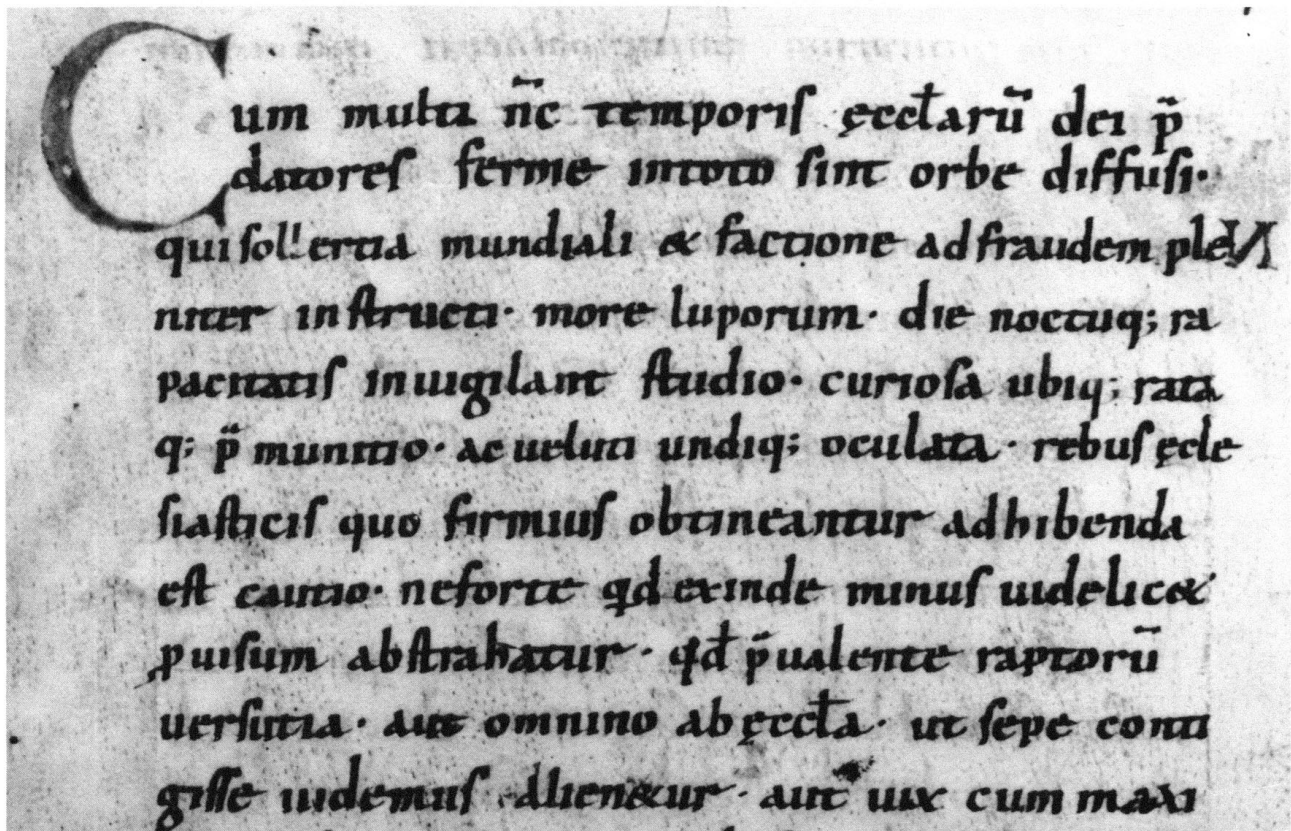 Cum multi nc̄ temporis ęccl̄arū dei p̄
datores ferme intoto sint orbe diffusi·
qui sollertia mundiali & factione adfraudem ple
niter instructi· more luporum· die noctuq; ra
pacitatis inuigilant studio· curiosa ubiq; rata
q; p̄munitio· ac ueluti undiq; oculata· rebus ęcle
siasticis quo firmius obtineantur adhibenda
est cautio· neforte qd exinde minus uidelic&
ꝓuisum abstrahatur· qđ p̄ualente raptorū
uersutia· aut omnino ab ęccl̄a· ut sepe conti
gisse uidemus alien&ur· aut uix cum maxi